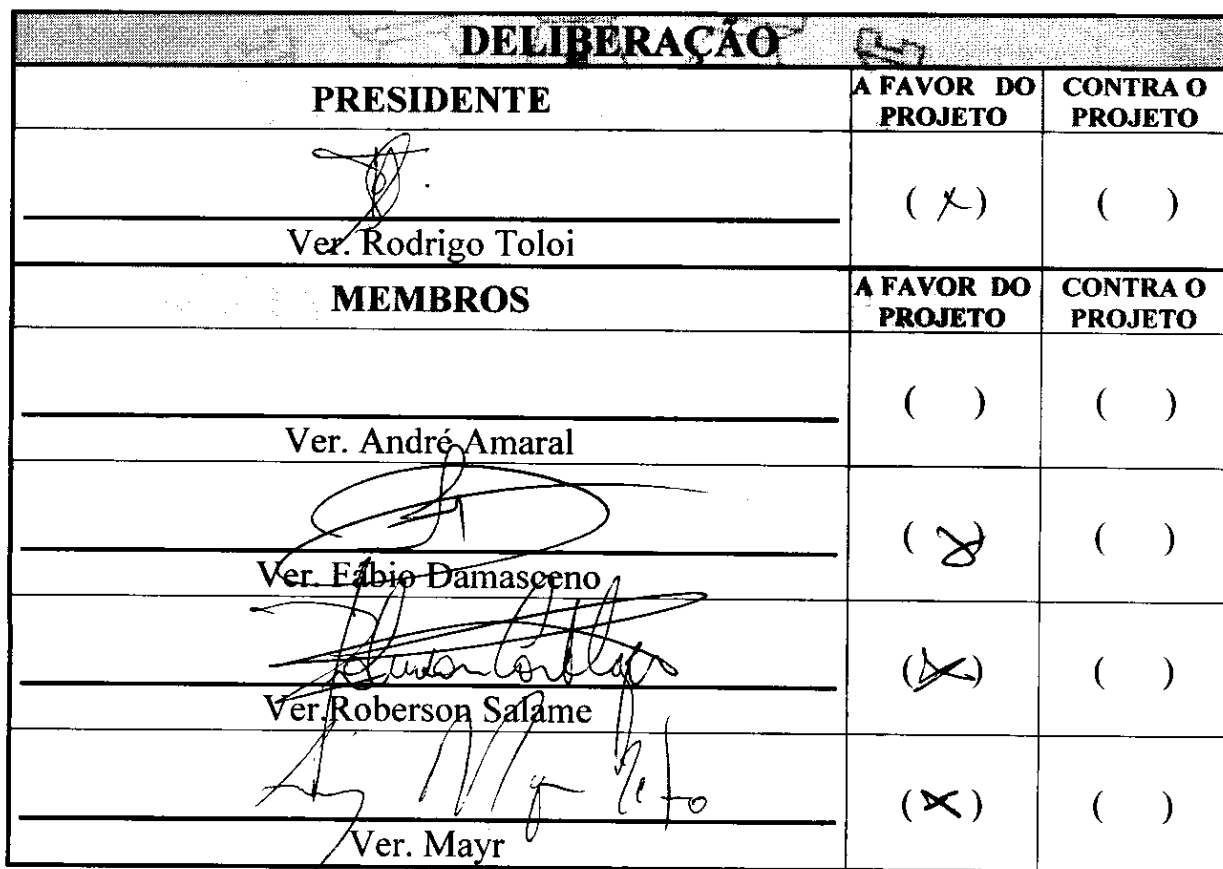 DELIBERAÇÃO
PRESIDENTE
A FAVOR DO
PROJETO
CONTRA O
PROJETO
( x )
( )
Ver. Rodrigo Toloi
MEMBROS
A FAVOR DO
PROJETO
CONTRA O
PROJETO
( )
( )
Ver. André Amaral
( x )
( )
Ver. Fábio Damasceno
( x )
( )
Ver.Roberson Salame
( x )
( )
Ver. Mayr